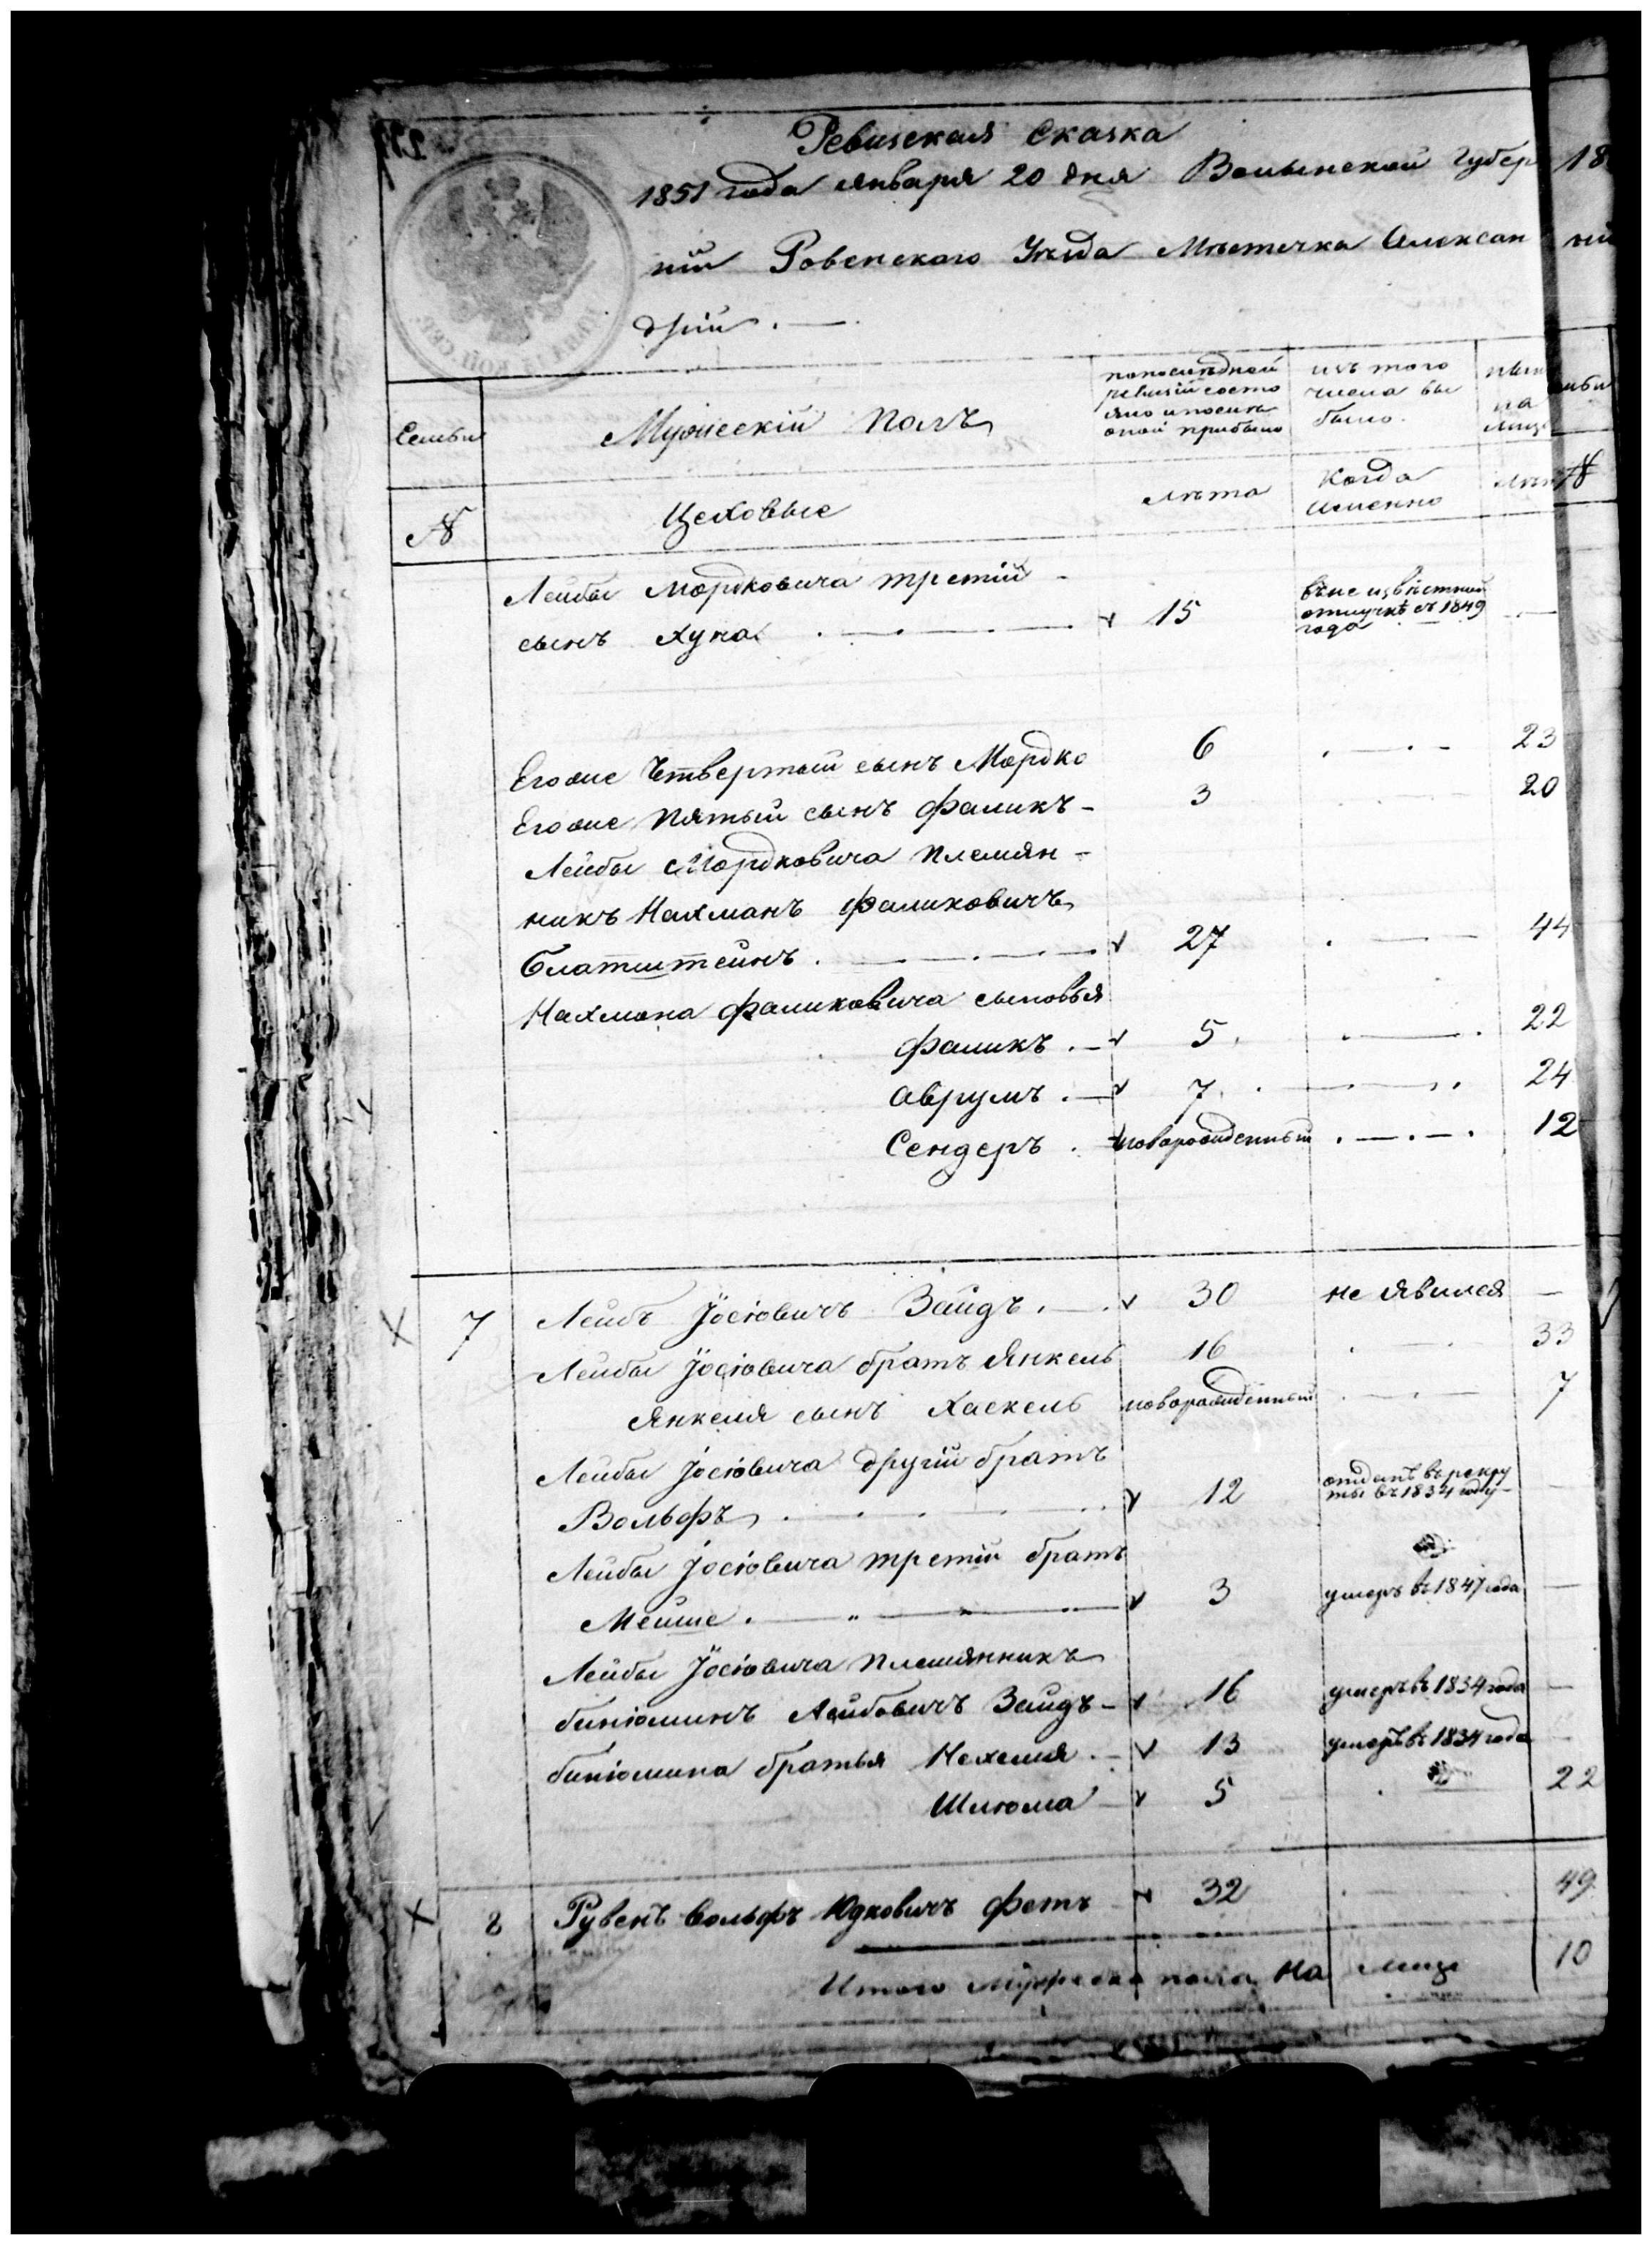 Ревизская Сказка
1851 года января 20 дня Волынской Губер
ніи Ровенского Уѣзда Мѣстечка Алексан
дріи.
Семьи
Мужескій Полъ
по последней
ревизіи состо
яло и после
оной прибыло
изъ того
числа вы
было.
на
лице
№
Цеховые
лѣта
Когда
именно
лѣта
№
Лейбы Мордковича третій
сынъ Хуна 15
въ неизвѣстной
отлучкѣ съ 1849
года
Егоже Четвертый сынъ Мордко 6 23
Егоже Пятый сынъ Фаликъ 3 20
Лейбы Мордковича Племян-
никъ Нахманъ Фаликовичъ
Блатштейнъ. 27 44
Нахмана Фаликовича сыновья
Фаликъ. 5 22
Аврумъ. 7 24
Сендеръ. новорожденный 12
7 Лейбъ Іосіовичъ Зайдъ. 30 не явился
Лейбы Іосіовича братъ Янкель 16 33
Янкеля сынъ Хаскель новорожденный 7
Лейбы Іосіовича другій братъ
Вольфъ 12 отданъ въ рекру
ты въ 1834 году
Лейбы Іосіовича третій братъ
Мейше. 3 умеръ въ 1847 года
Лейбы Іосіовича племянникъ
Биніоминъ Лейбовичъ Зайдъ 16 умеръ въ 1834 года
Биніомина братья Нехемія. 13 умеръ въ 1834 года
Шлюома 5 22
8 Рувенъ Вольфъ Юдковичъ Фетъ 32 49
Итого мужеска пола на лице 10